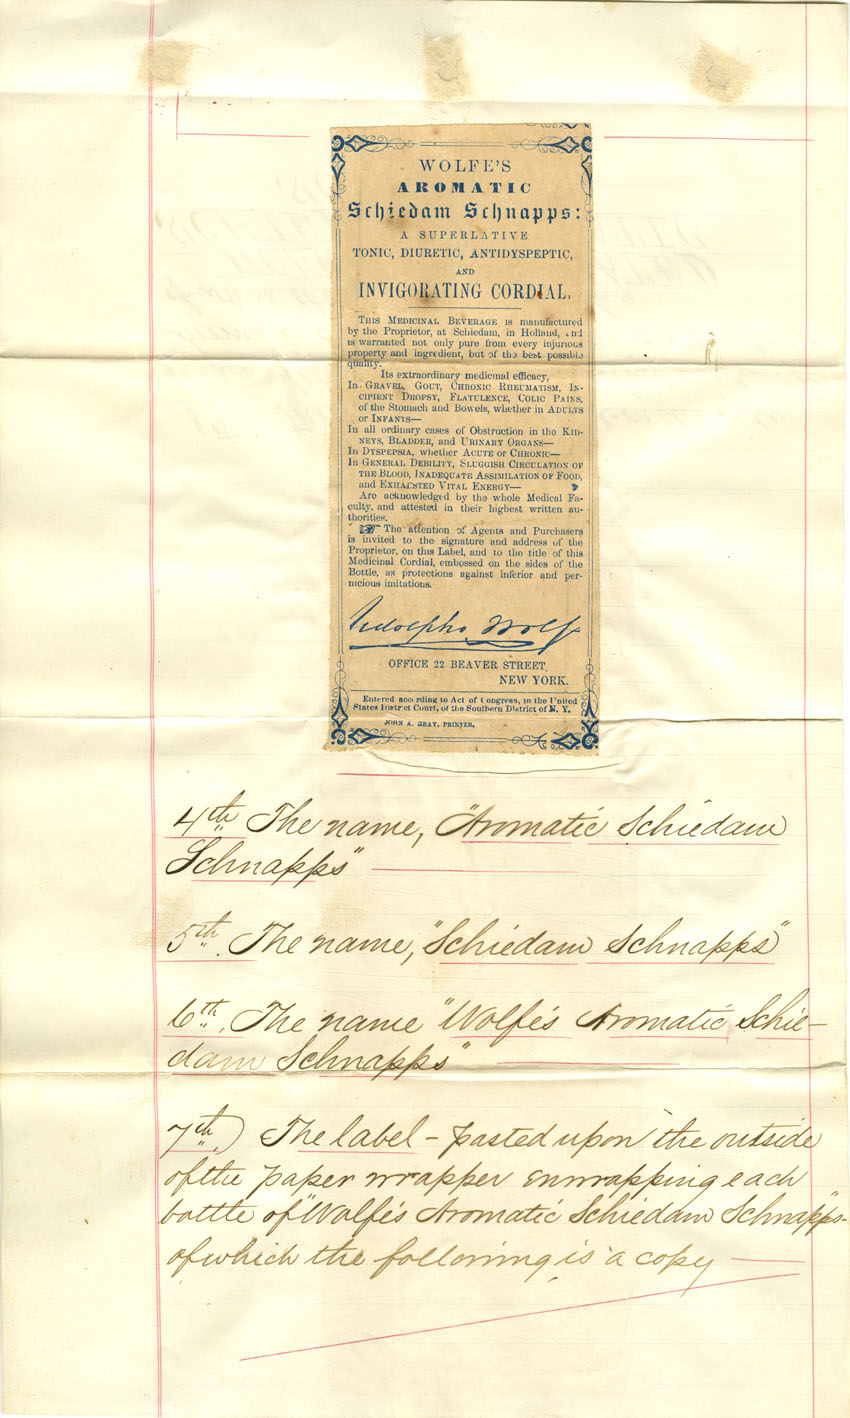 WOLFE'S
AROMATIC
Schiedam Schnapps:
A SUPERLATIVE
TONIC, DIURETIC, ANTIDYSPEPTIC,
AND
INVIGORATING CORDIAL,
THIS MEDICINAL BEVERAGE is manufactured
by the Proprietor, at Schiedam, in Holland, and
is warranted not only pure from every injurious
property and ingredient, but of the best possible
quality.
Its extraordinary medicinal efficacy,
In GRAVEL, GOUT, CHRONIC RHEUMATISM, IN-
CIPIENT DROPSY, FLATULENCE, COLIC PAINS,
of the Stomach and Bowels, whether in ADULTS
or INFANTS—
In all ordinary cases of Obstruction in the KID-
NEYS, BLADDER, and URINARY ORGANS—
In DYSPEPSIA, whether ACUTE or CHRONIC—
In GENERAL DEBILITY, SLUGGISH CIRCULATION OF
THE BLOOD, INADEQUATE ASSIMILATION OF FOOD,
and EXHAUSTED VITAL ENERGY—
Are acknowledged by the whole Medical Fa-
culty, and attested in their highest written au-
thorities.
☞ The attention of Agents and Purchasers
is invited to the signature and address of the
Proprietor, on this Label, and to the title of this
Medicinal Cordial, embossed on the sides of the
Bottle, as protections against inferior and per-
nicious imitations.
Udolpho Wolfe
OFFICE 22 BEAVER STREET,
NEW YORK.
Entered according to Act of Congress, in the United
States District Court, of the Southern District of N. Y.
JOHN A. GRAY, PRINTER,
4th The name, "Aromatic Schiedam
Schnapps"
5th. The name, "Schiedam Schnapps"
6th. The name "Wolfe's Aromatic Schie-
dam Schnapps"
7th.) The label - pasted upon the outside
of the paper wrapper enwrapping each
bottle of "Wolfe's Aromatic Schiedam Schnapps"-
of which the following is a copy